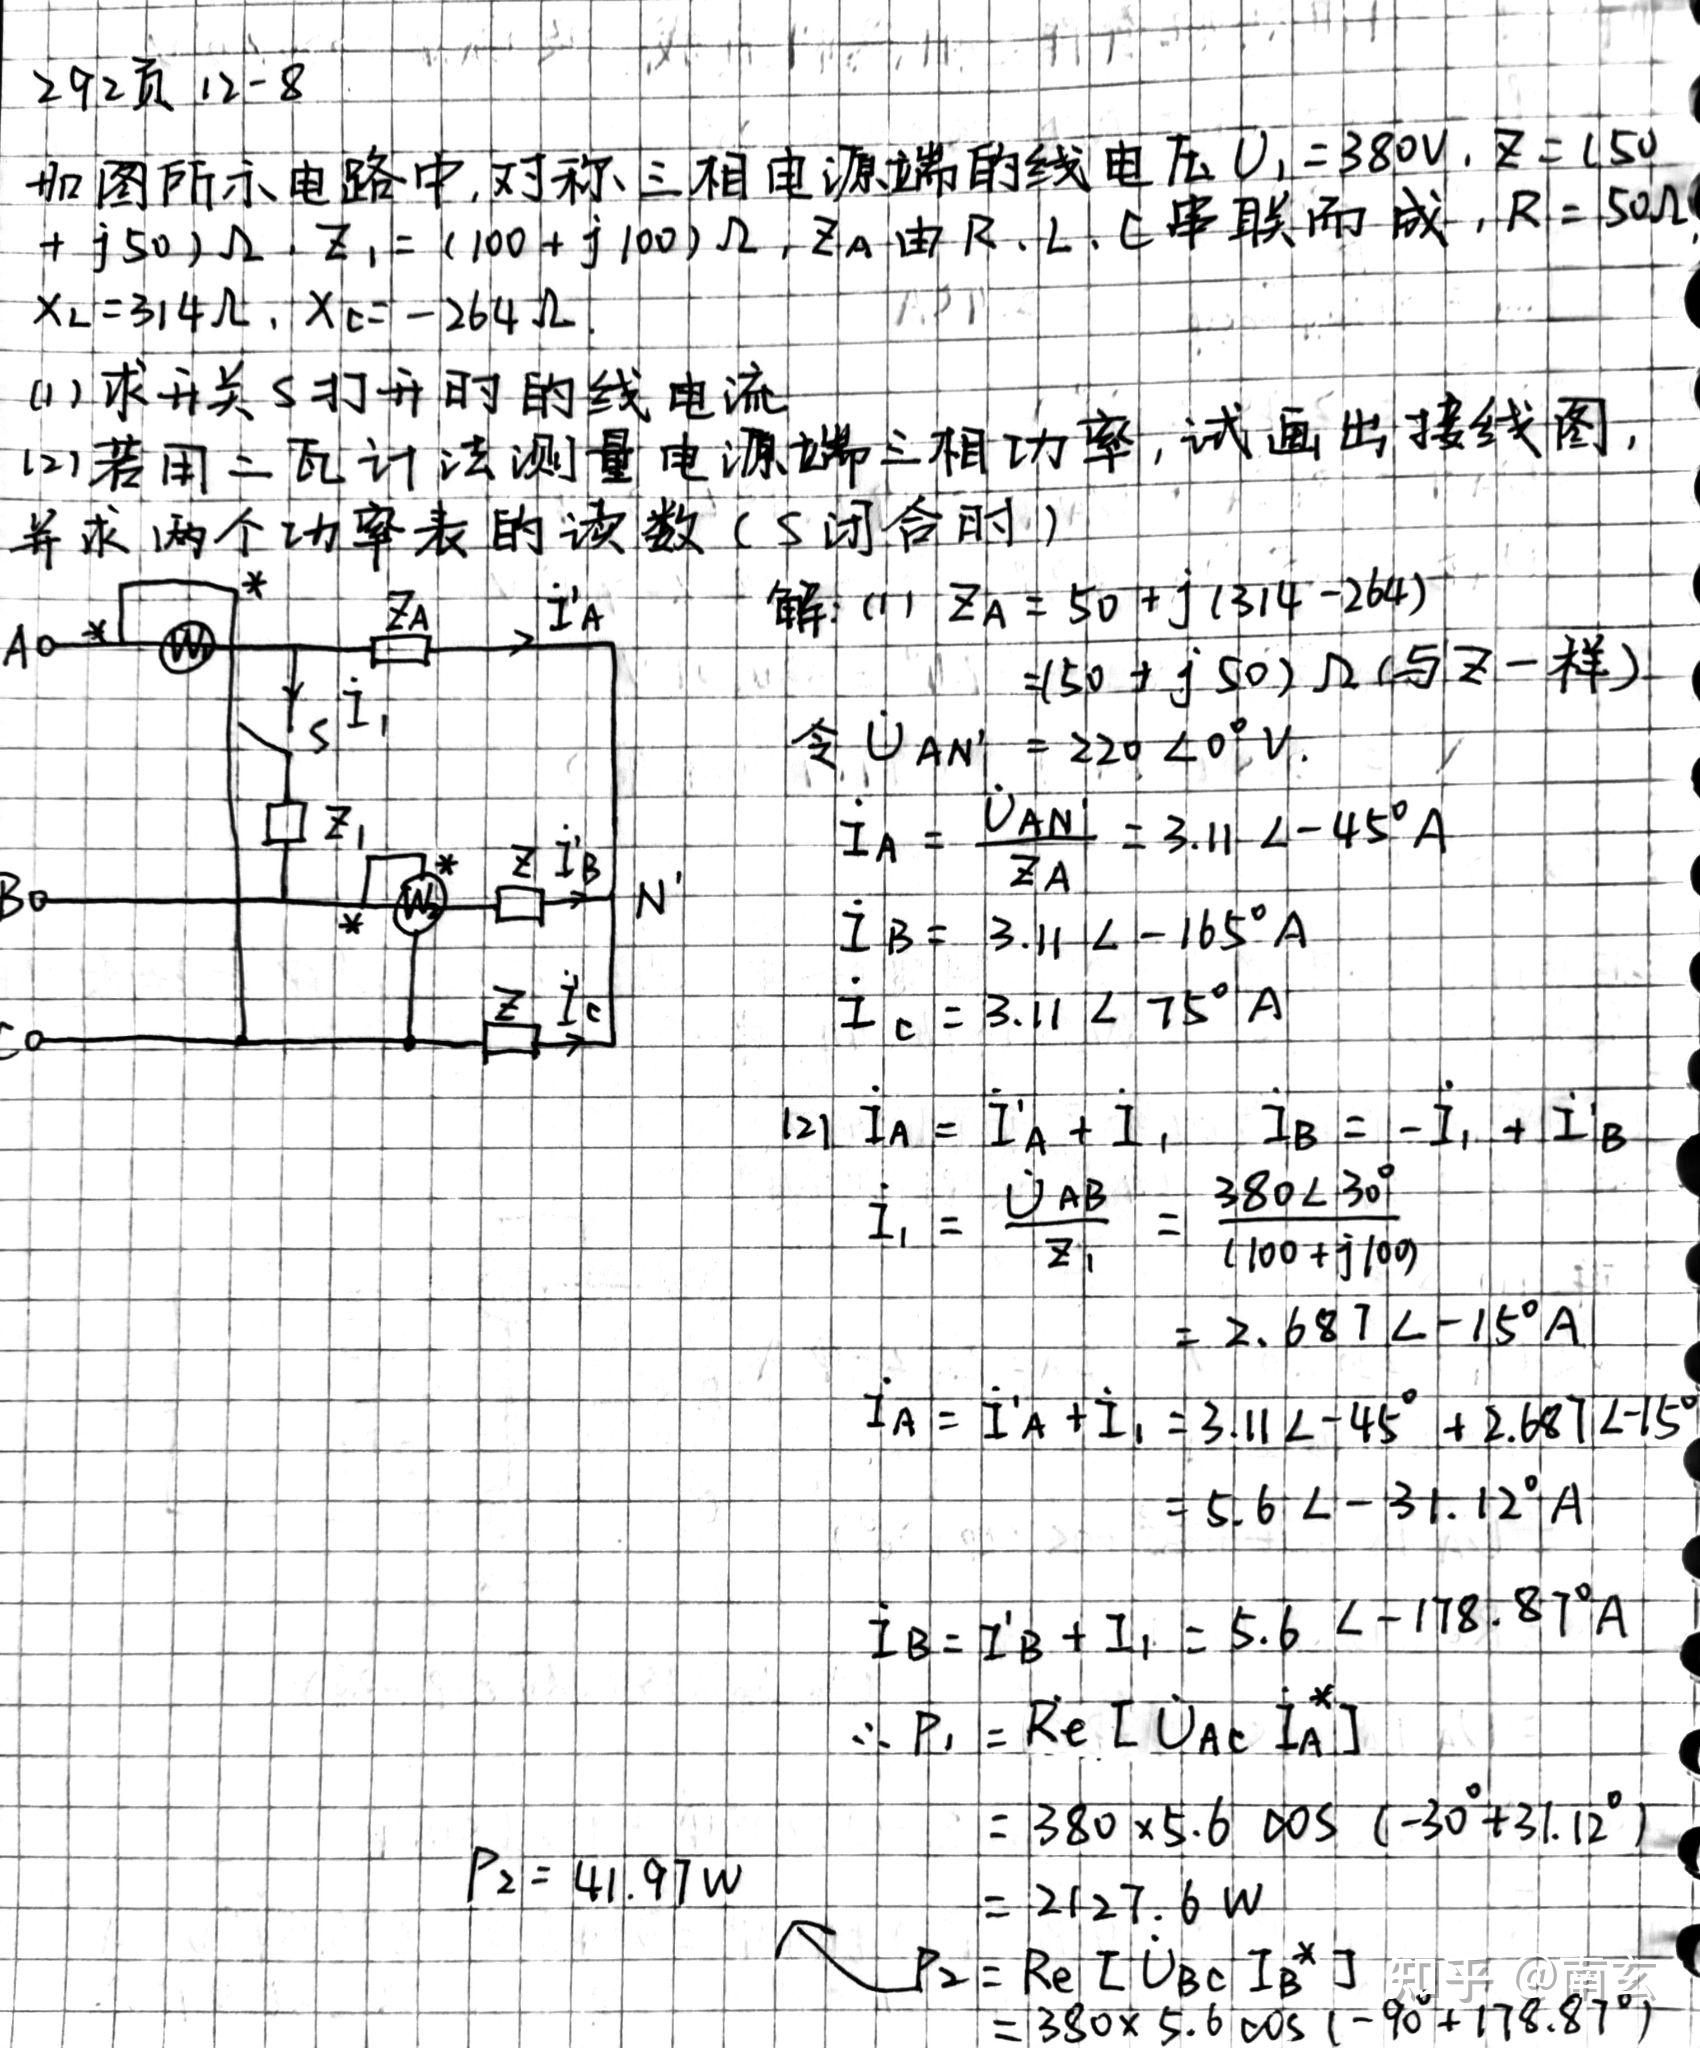 292页 12-8
如图所示电路中,对称三相电源端的线电压U₁=380V,Z=(50
+j50)Ω,Z₁=(100+j100)Ω,ZA由R、L、C串联而成,R=50Ω,
XL=314Ω,Xc=-264Ω.
(1)求开关S打开时的线电流
(2)若用二瓦计法测量电源端三相功率,试画出接线图,
并求两个功率表的读数(S闭合时)
*
A
*
W₁
ZA
İ'A
İ₁
S
Z₁
B
*
W₂
*
Z
İ'B
N'
C
Z
İ'c
解:(1) ZA=50+j(314-264)
=(50+j50)Ω(与Z一样)
令 U̇AN'=220∠0°V.
İA=U̇AN'/ZA=3.11∠-45°A
İB=3.11∠-165°A
İc=3.11∠75°A
(2) İA=İ'A+İ₁ İB=-İ₁+İ'B
İ₁=U̇AB/Z₁=380∠30°/(100+j100)
=2.687∠-15°A
İA=İ'A+İ₁=3.11∠-45°+2.687∠-15°
=5.6∠-31.12°A
İB=I'B+I₁=5.6∠-178.87°A
∴P₁=Re[U̇AC İA*]
=380×5.6cos(-30°+31.12°)
=2127.6W
P₂=Re[U̇BC IB*]
=380×5.6cos(-90°+178.87°)
P₂=41.97W
知乎 @南玄